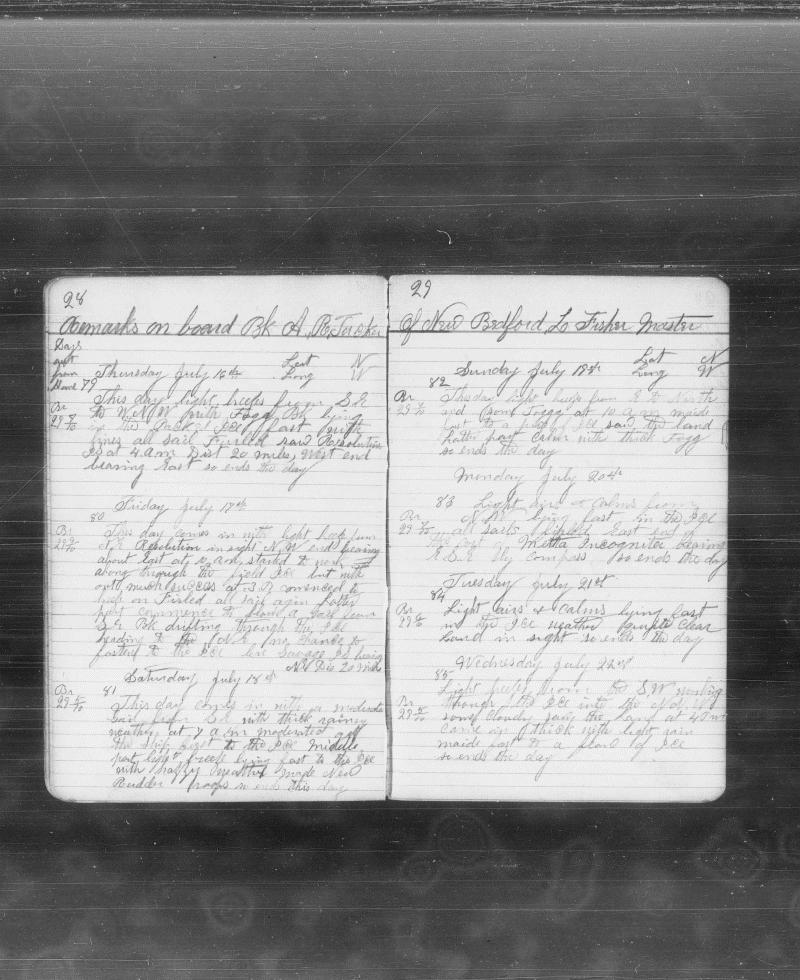 28
Remarks on board Bk A. R. Tucker
Days
out
from
Home 79 Thursday July 16th Lat N
Long W
This day light breeze from S.E.
to W.N.W. with Fogg, Bk lying
in the Pack of ICE fast with
lines all sail Furled saw Resolution
Is at 4 a.m. Dist 20 miles, West end
bearing East so ends the day
Friday July 17th
80
Br This day comes in with light breeze from
Resolution in sight N.W. end bearing
about East at 10 a.m. started to
along through the field ICE but with
out much success at 3 P. commenced to
Furled all sail again Latter
part commence to blow a gale from
S.E. Bk drifting through the ICE
heading to the no chance to
fasten to the ICE Savage Is bearing
N.W. Dis 20 miles
Saturday July 18th
Br 81
This day comes in with a moderate
gale from S.E. with thick rainey
weather at 7 a.m. moderated got
the ship fast to the ICE Middle
part light breeze lying fast to the ICE
with foggy weather made New
Rudder so ends this day
29
Of New Bedford, L. Fisher Master
Sunday July 19th Lat N
82 Long W
Br This day light breeze from E to North
and some Fogg at 10 a.m. maide
fast to a of ICE saw the land
latter part Calm with thick Fogg
so ends the day
Monday July 20th
83 Light airs & Calms from
Br N.W. lying fast in the ICE
all sails East end of
Metta Incognita bearing
E.S.E. by compass so ends the day
Tuesday July 21st
84
Br Light airs & calms lying fast
in the ICE weather quite clear
Land in sight so ends the day
Wednesday July 22nd
85
Light breeze from the S.W. working
Br through the ICE into the
some Cloudy saw the Land at 4 P.m
Came in thick with light rain
maide fast to a of ICE
so ends the day